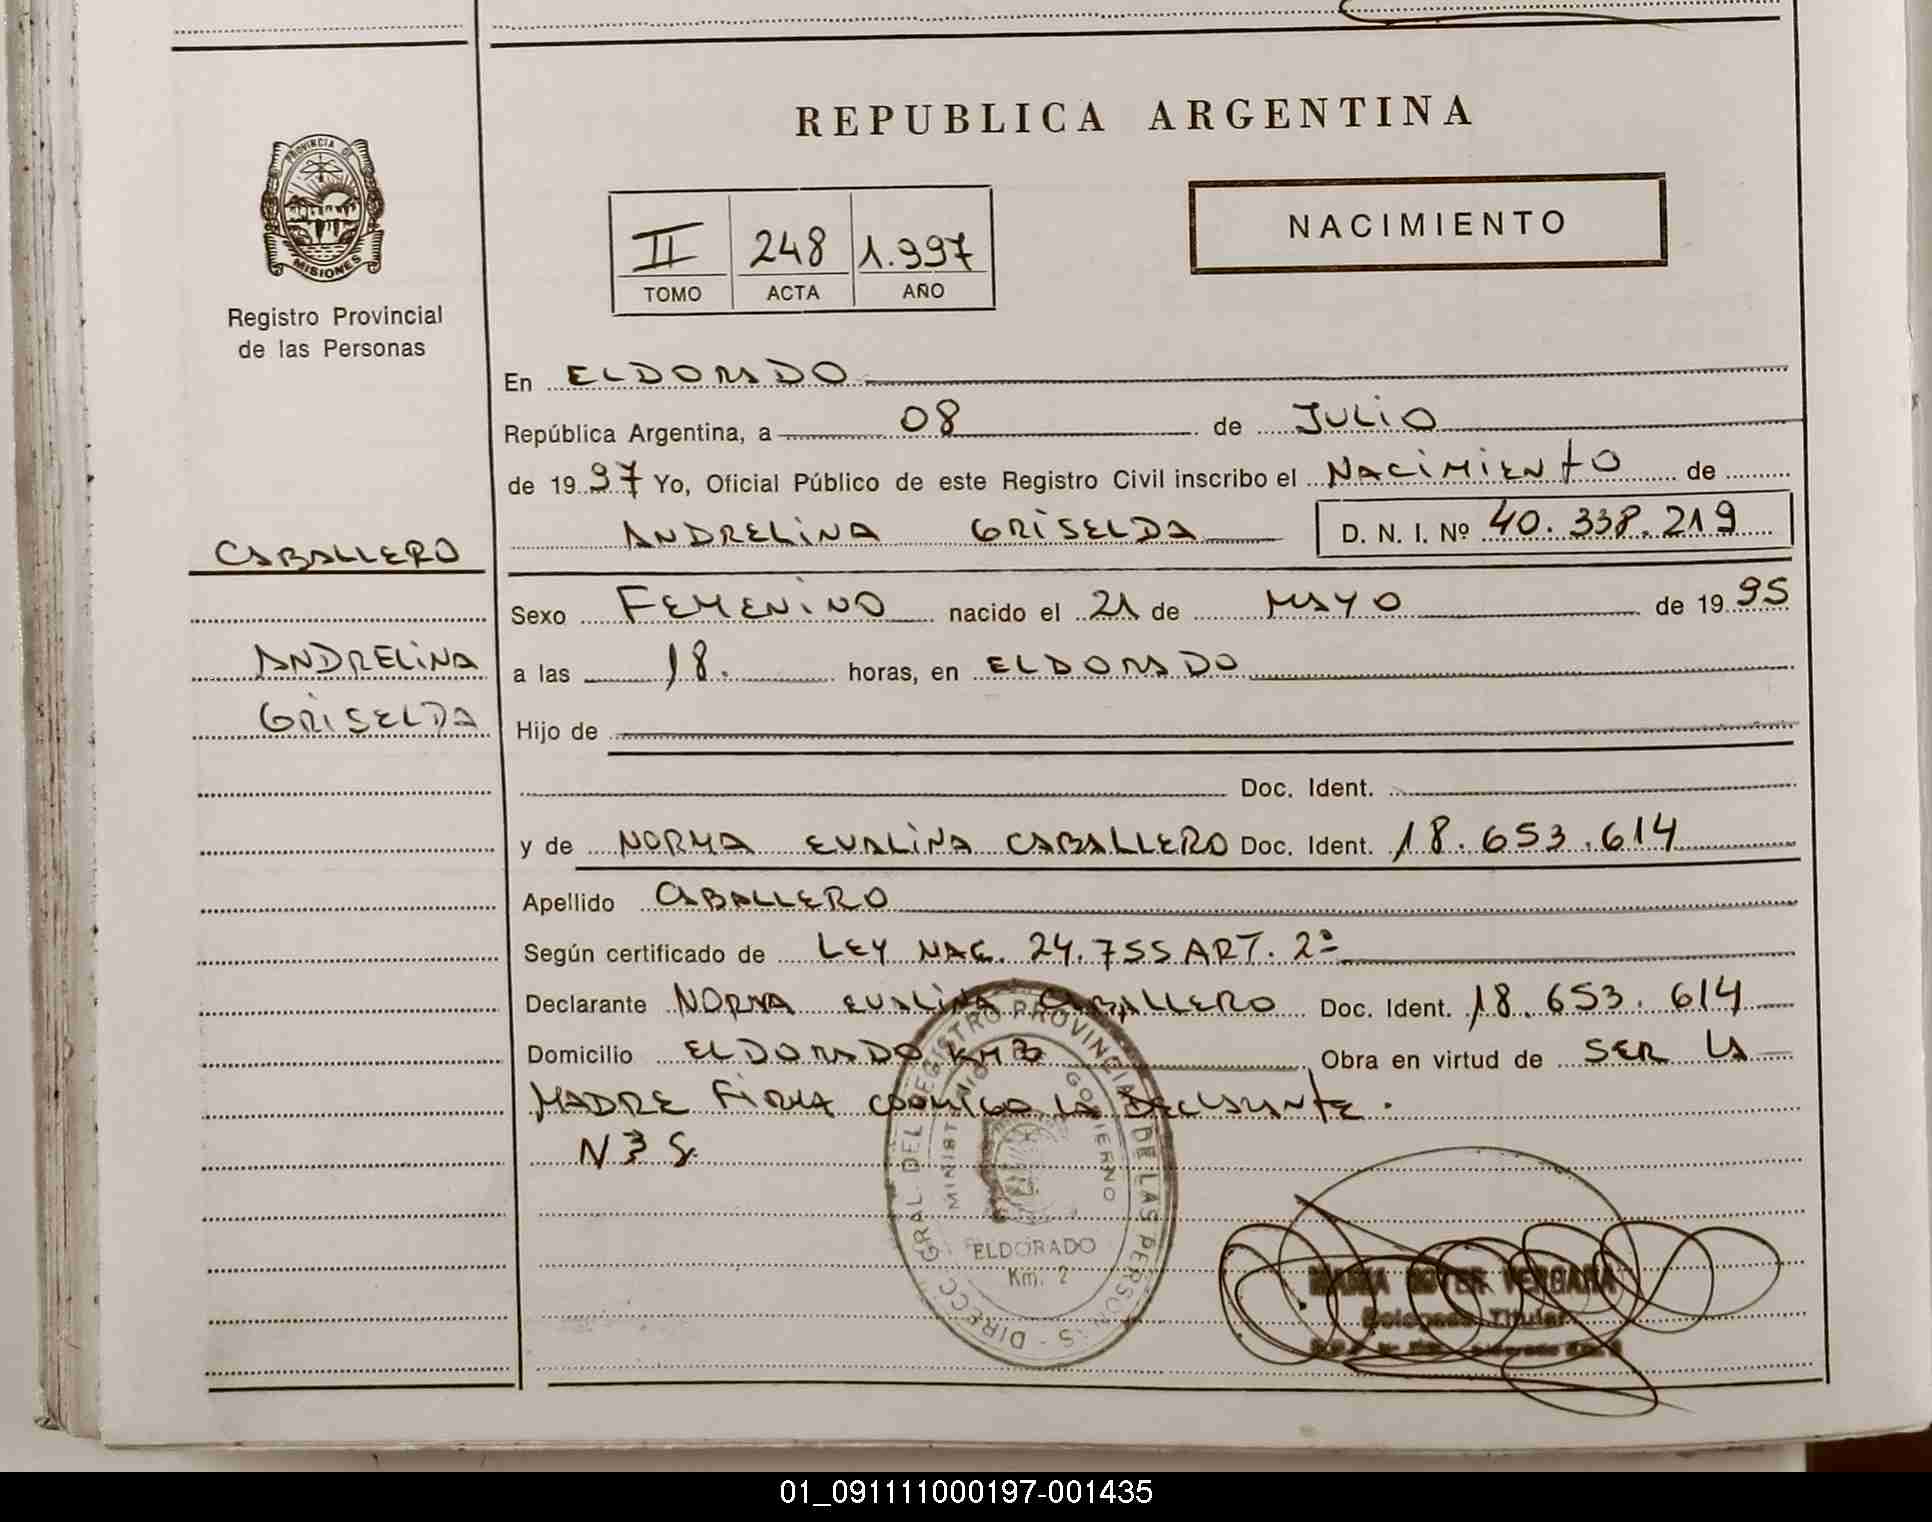 REPUBLICA ARGENTINA
PROVINCIA DE
MISIONES
Registro Provincial
de las Personas
II 248 1.997
TOMO ACTA AÑO
NACIMIENTO
En ELDORADO
República Argentina, a 08 de JULIO
de 1997 Yo, Oficial Público de este Registro Civil inscribo el NACIMIENTO de
ANDRELINA GRISELDA D. N. I. Nº 40.338.219
CABALLERO
ANDRELINA
GRISELDA
Sexo FEMENINO nacido el 21 de MAYO de 1995
a las 18. horas, en ELDORADO
Hijo de
Doc. Ident.
y de NORMA EVALINA CABALLERO Doc. Ident. 18.653.614
Apellido CABALLERO
Según certificado de LEY NAC. 24.755 ART. 2º
Declarante NORMA EVALINA CABALLERO Doc. Ident. 18.653.614
Domicilio ELDORADO KM 3 Obra en virtud de SER LA
MADRE FIRMA CONMIGO LA DECLARANTE.
DIRECC. GRAL. DEL REGISTRO PROVINCIAL DE LAS PERSONAS
MINISTERIO GOBIERNO
ELDORADO
Km. 2
MARIA ESTER VERGARA
Delegada Titular
01_091111000197-001435